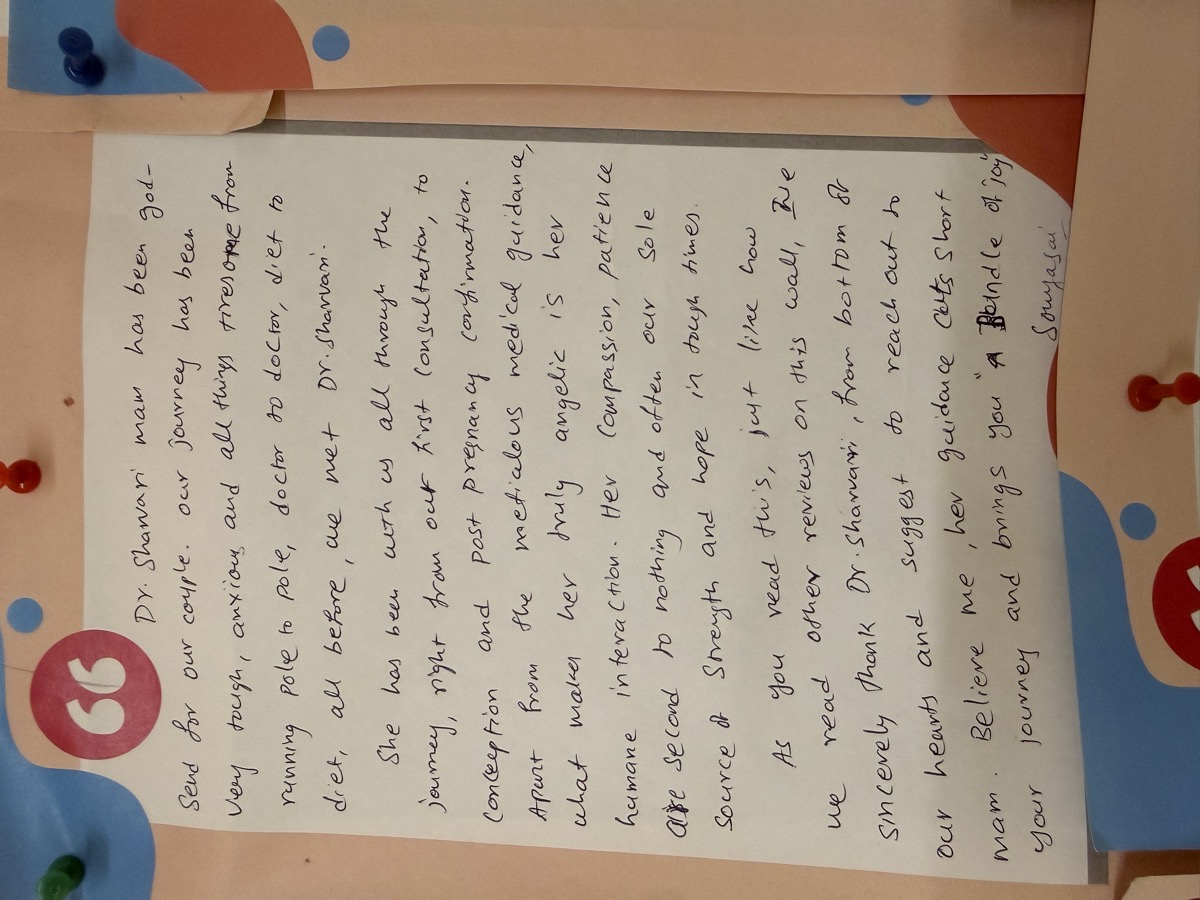 Dr. Sharvari mam has been god-
send for our couple. our journey has been
very tough, anxious and all things tiresome from
running pole to pole, doctor to doctor, diet to
diet, all before, we met Dr. Sharvari.
She has been with us all through the
journey, right from our first consultation, to
conception and post pregnancy confirmation.
Apart from the meticalous medical guidance,
what makes her truly angelic is her
humane interaction. Her compassion, patience
are second to nothing and often our sole
source of strength and hope in tough times.
As you read this, just like how
we read other reviews on this wall, we
sincerely thank Dr. Sharvari, from bottom of
our hearts and suggest to reach out to
mam. Believe me, her guidance cuts short
your journey and brings you "A Bundle of joy"